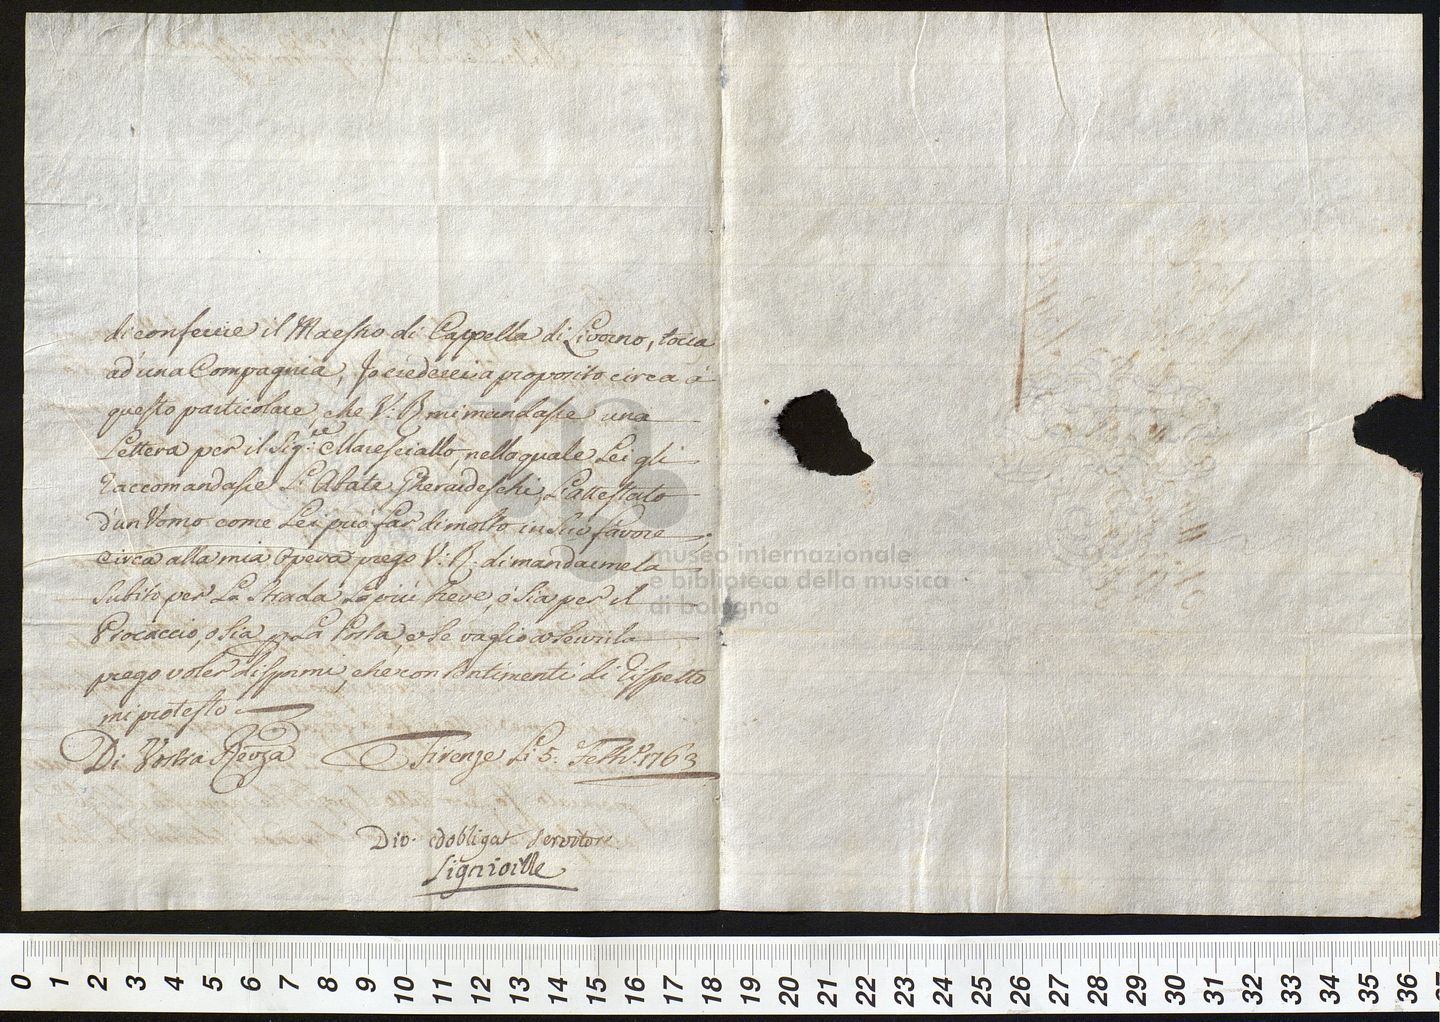 di conferire il Maestro di Cappella di Livorno, tocca
ad una Compagnia, Io crederei a proposito circa à
questo particolare, che V: R mi mandasse una
Lettera per il Sig:re Maresciallo, nello quale Lei gli
raccomandasse L: Abate Gherardeschi, L'attestato
d'un Uomo come Lei può far di molto in suo favore
Circa alla mia Opera prego V: R: di mandarmela
subito per La Strada La più breve, ó sia per il
Procaccio, o sia p La Posta, e Se vaglio a Servirla
prego voler disporni, che con Sentimenti di rispetto
mi protesto
Di Vostra Revza Firenze Li 5: Febb:o 1763
Div: ed obligat Servitore
Ligniville
museo internazionale
e biblioteca della musica
di bologna
0 1 2 3 4 5 6 7 8 9 10 11 12 13 14 15 16 17 18 19 20 21 22 23 24 25 26 27 28 29 30 31 32 33 34 35 36 37